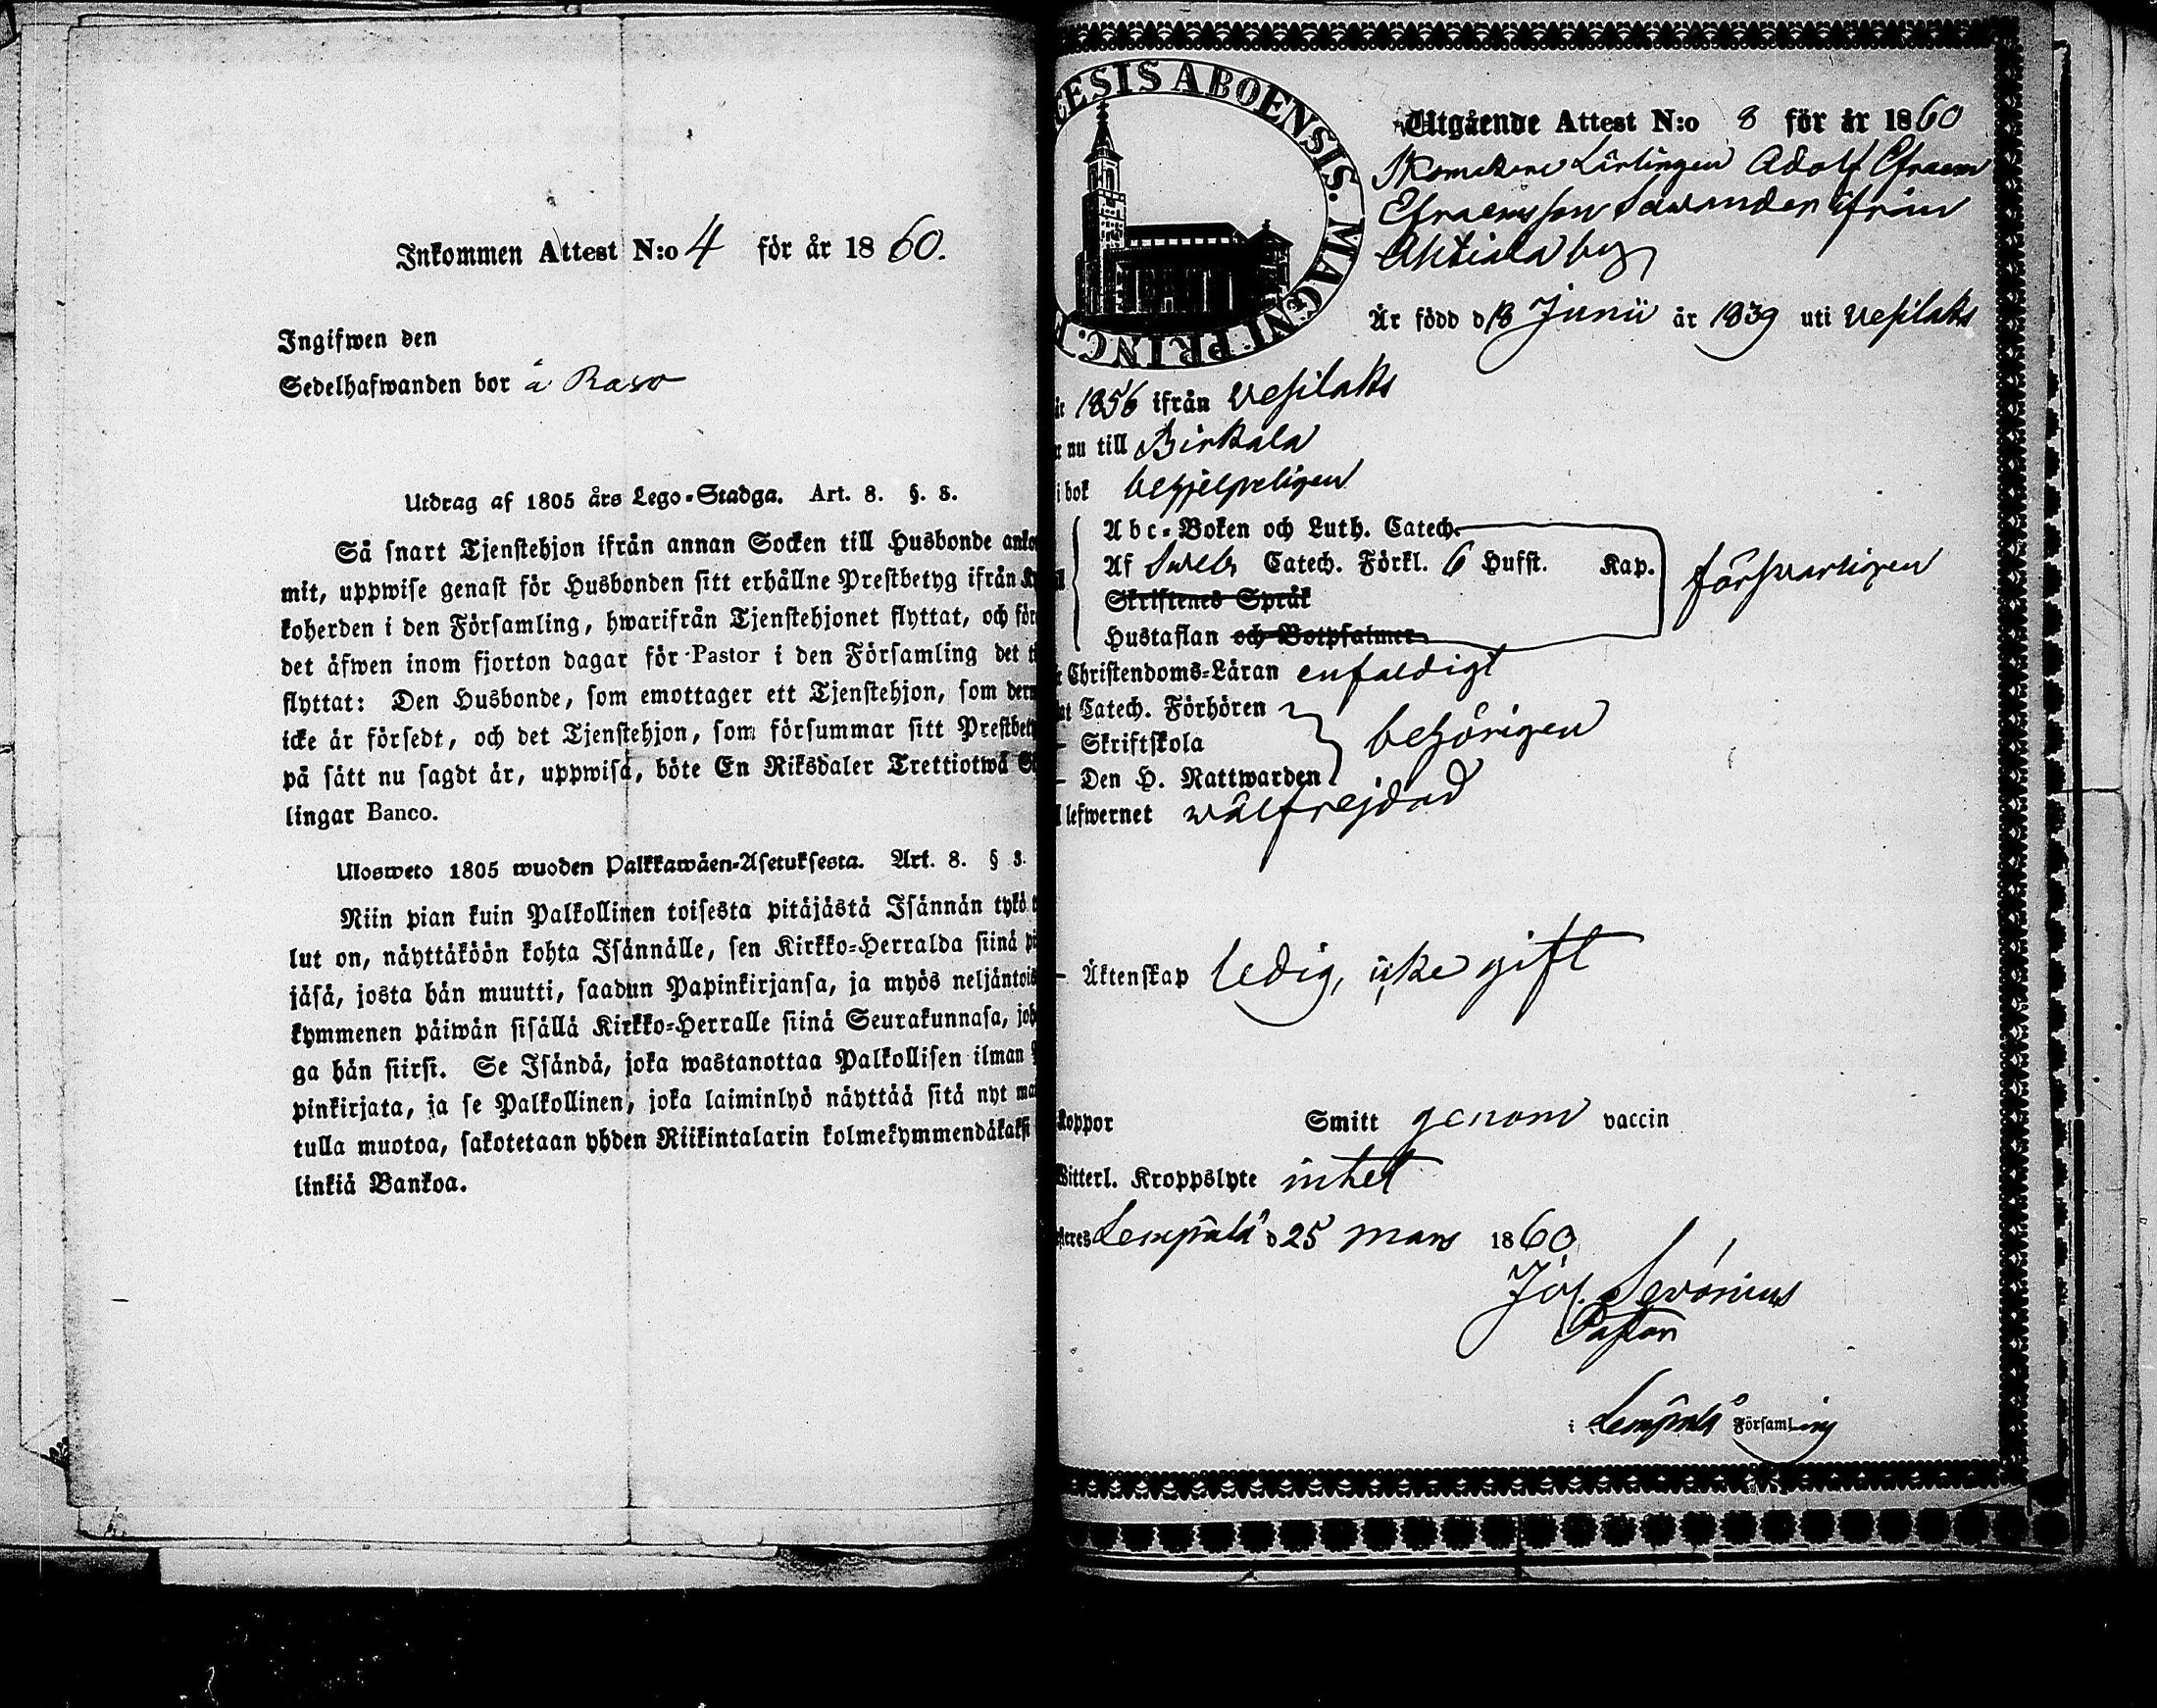 Inkommen Attest N:o 4 för år 1860.
Ingifwen den
Sedelhafwanden bor å Raso
Utdrag af 1805 års Lego-Stadga. Art. 8. §. 8.
Så snart Tjenstehjon ifrån annan Socken till Husbonde anko
mit, uppwise genast för Husbonden sitt erhållne Prestbetyg ifrån Ky
koherden i den Församling, hwarifrån Tjenstehjonet flyttat, och för
det äfwen inom fjorton dagar för Pastor i den Församling det ti
flyttat: Den Husbonde, som emottager ett Tjenstehjon, som derm
icke är försedt, och det Tjenstehjon, som försummar sitt Prestbety
på sätt nu sagdt är, uppwisa, böte En Riksdaler Trettiotwå
lingar Banco.
Ulosweto 1805 wuoden Palkkawäen-Asetuksesta. Art. 8. § 3.
Niin pian kuin Palkollinen toisesta pitäjästä Isännän tykö t
lut on, näyttäköön kohta Isännälle, sen Kirkko-Herralda siinä pi
jäsä, josta hän muutti, saadun Papinkirjansa, ja myös neljäntois
kymmenen päiwän sisällä Kirkko-Herralle siinä Seurakunnasa, joh
ga hän siirsi. Se Isändä, joka wastanottaa Palkollisen ilman
pinkirjata, ja se Palkollinen, joka laiminlyö näyttää sitä nyt mai
tulla muotoa, sakotetaan yhden Riikintalarin kolmekymmendäkaksi
linkiä Bankoa.
CESIS ABOENSIS. MAGNI PRINC. F
Utgående Attest N:o 8 för år 1860
Skomakare Lärlingen Adolf Efraem
Efraemsson Sawander ifrån
Ahtiala by
Är född d 18 Junii år 1839 uti Vesilaks
år 1856 ifrån Vesilaks
r nu till Birkala
i bok behjelpeligen
Abc-Boken och Luth. Catech.
Af Sweb Catech. Förkl. 6 Hufst. Kap. försvarligen
Skriftenes Språk
Hustaflan och Botpsalmer
Christendoms-Läran enfaldigt
t Catech. Förhören
- Skriftskola behörigen
- Den H. Nattwarden
lefwernet wälfrejdad
- Äktenskap ledig, icke gift
koppor Smitt genom vaccin
Witterl. Kroppslyte intet
steres Lempälä d 25 mars 1860
Jos. Sevonius
Pastor
i Lempälä Församling